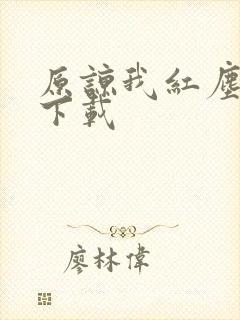 原諒我紅塵
下載
廖林偉